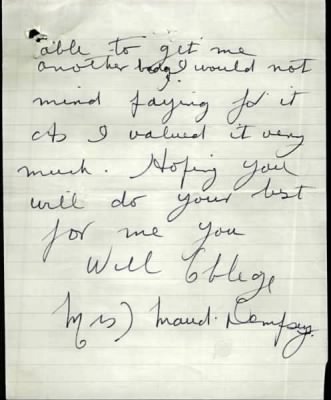 able to get me
another badge I would not
mind paying for it
As I valued it very
much. Hoping you
will do your best
for me you
Will Oblege
Mrs) Maud. Dempsey.